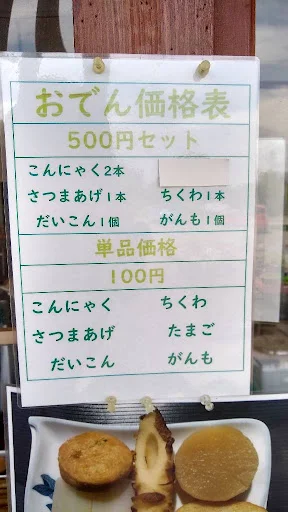 おでん価格表
500円セット
こんにゃく2本
さつまあげ1本 ちくわ1本
だいこん1個 がんも1個
単品価格
100円
こんにゃく ちくわ
さつまあげ たまご
だいこん がんも